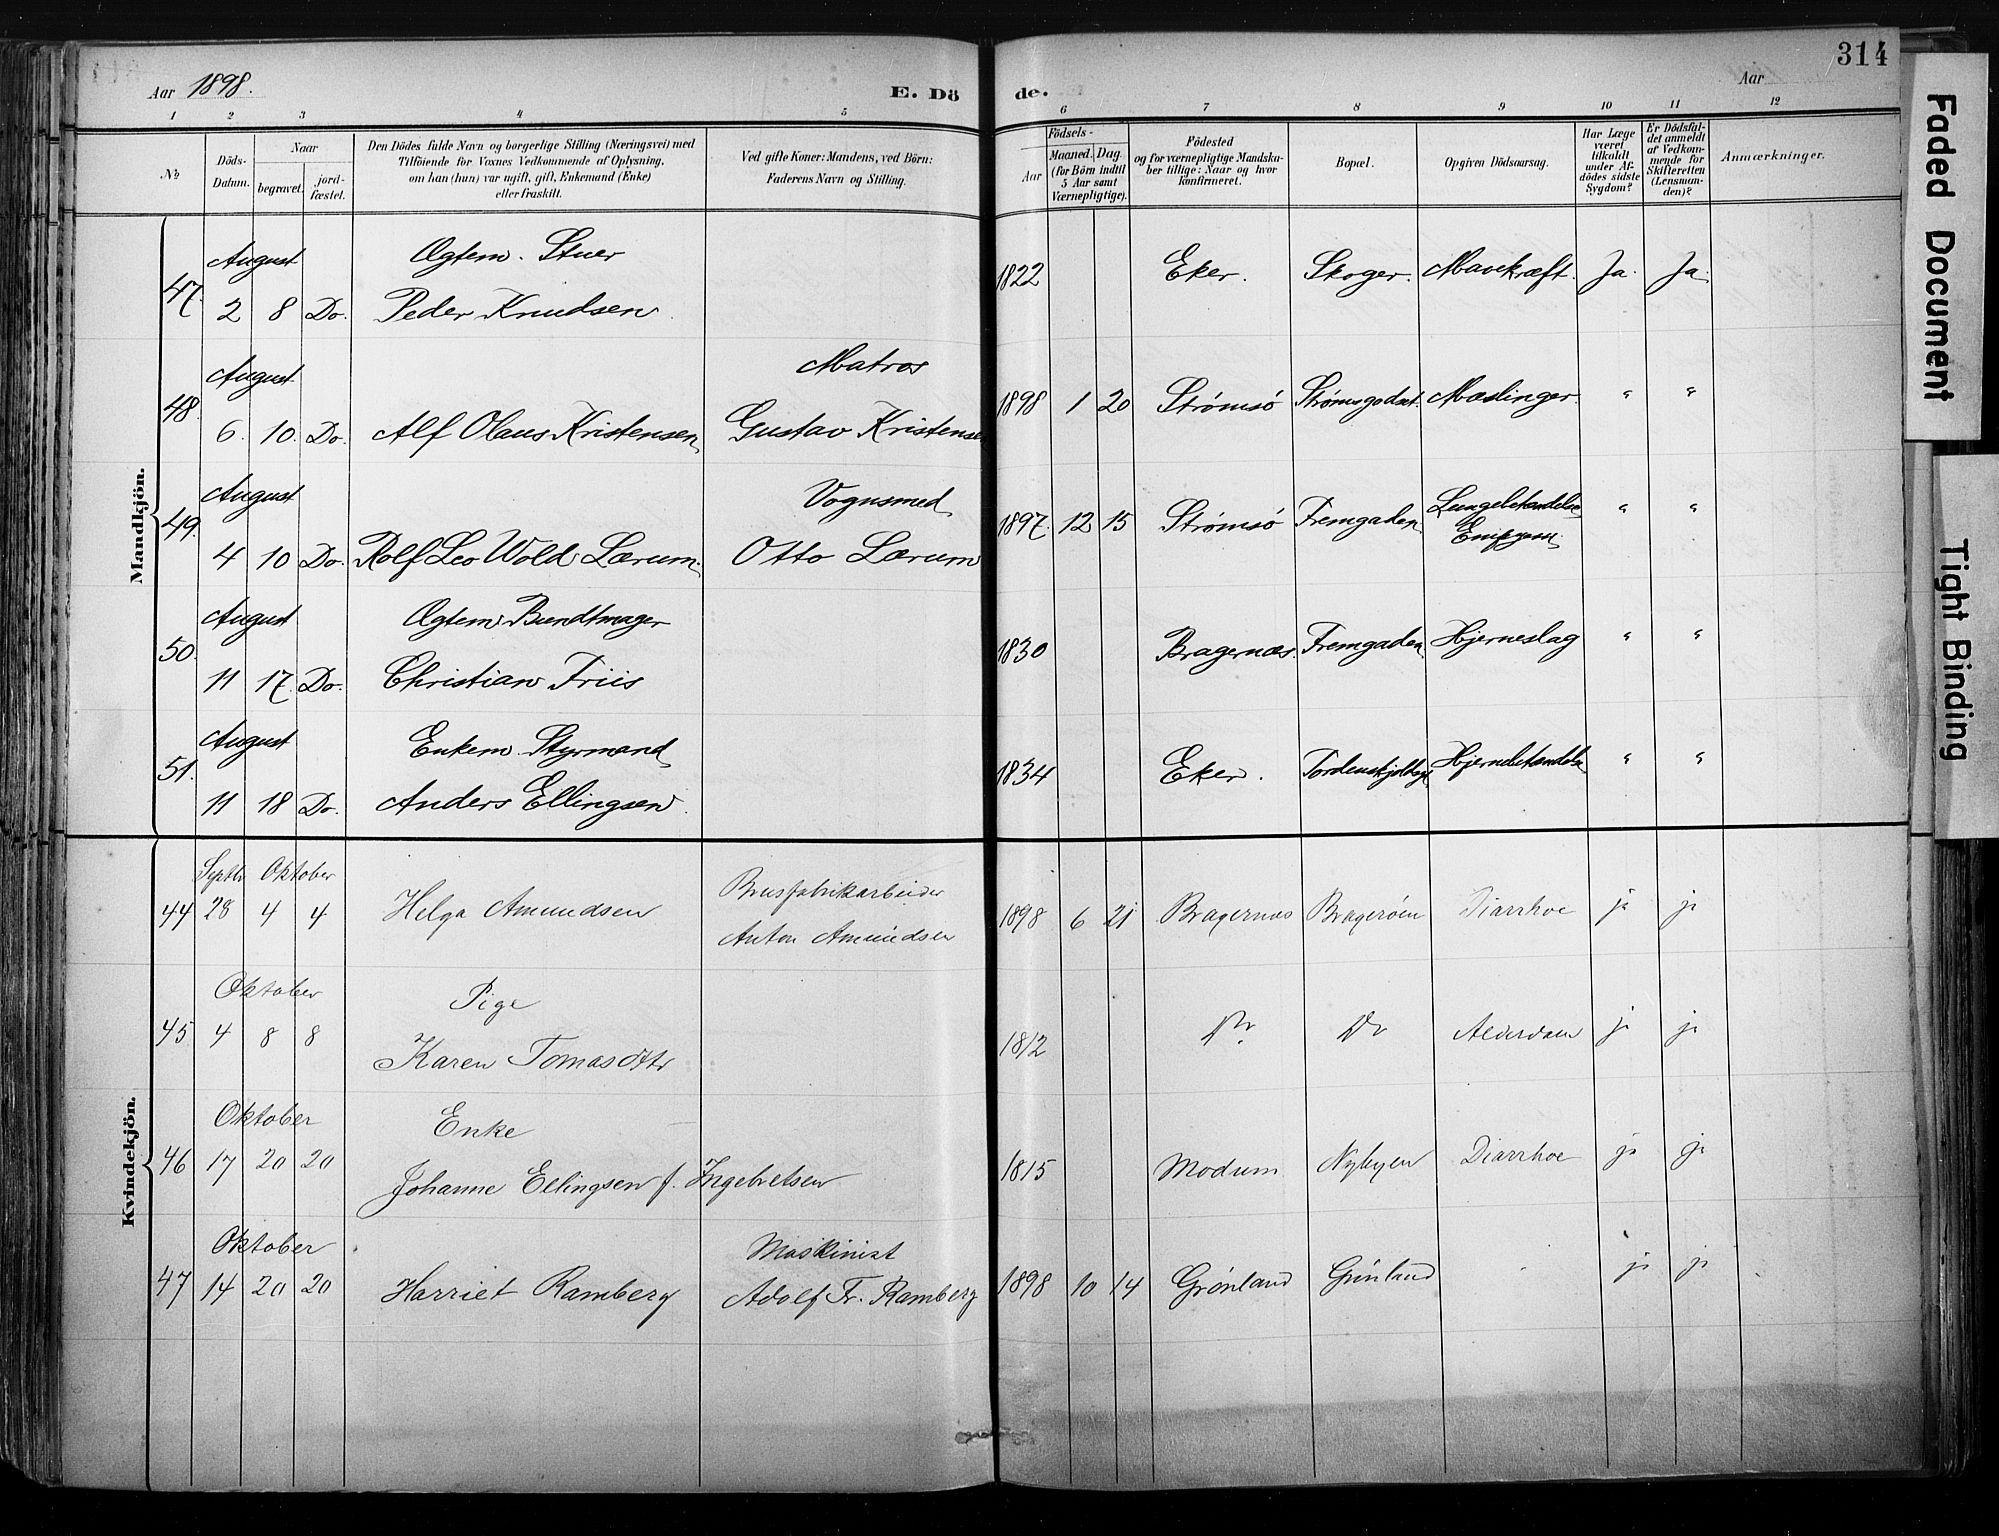 314
Aar 1898.
E. Dö
de.
Aar
1 2 3 4 5 6 7 8 9 10 11 12
№
Döds-
Datum.
Naar
begravet.
jord-
fæstet.
Den Dödes fulde Navn og borgerlige Stilling (Næringsvei) med
Tilföiende for Voxnes Vedkommende af Oplysning,
om han (hun) var ugift, gift, Enkemand (Enke)
eller fraskilt.
Ved gifte Koner: Mandens, ved Börn:
Faderens Navn og Stilling.
Födsels-
Aar
Maaned. Dag.
(for Börn indtil
5 Aar samt
Værnepligtige).
Födested
og for værnepligtige Mandska-
ber tillige: Naar og hvor
konfirmeret.
Bopæl.
Opgiven Dödsaarsag.
Har Læge
været
tilkaldt
under Af-
dødes sidste
Sygdom?
Er Dödsfal-
det anmeldt
af Vedkom-
mende for
Skifteretten
(Lensman-
den)?
Anmærkninger.
Mandkjön.
August Ægtem. Stuer
47. 2 8 Do. Peder Knudsen 1822 Eker. Skoger. Mavekræft. Ja. Ja.
August Matros
48. 6. 10. Do. Alf Olaus Kristensen Gustav Kristensen 1898 1 20 Strømsö Strømsgodset. Mæslinger. " "
August Vognsmed
49. 4 10 Do. Rolf Leo Wold Lærum. Otto Lærum 1897. 12 15 Strømsö Fremgaden Lungebetændelse " "
August Ægtem. Bundtmager
50. 11 17. Do. Christian Friis 1830 Bragernæs. Fremgaden Hjerneslag " "
August Enkem. Styrmand
51. 11 18 Do. Anders Ellingsen. 1834 Eker. Hjernebetændelse " "
Kvindekjön.
Septbr Oktober Brusfabrikarbeider
44 28 4 4 Helga Amundsen Anton Amundsen 1898 6 21 Bragernæs Bragerøen Diarrhoe ja ja
Oktober Pige
45 4 8 8 Karen Tomasdttr 1812 Do Do Alderdom ja ja
Oktober Enke
46 17 20 20 Johanne Ellingsen f. Ingebretsen 1815 Modum Nybyen Diarrhoe ja ja
Oktober Maskinist
47 14 20 20 Harriet Ramberg Adolf Fr. Ramberg 1898 10 14 Grønland Grønland ja ja
Faded Document
Tight Binding